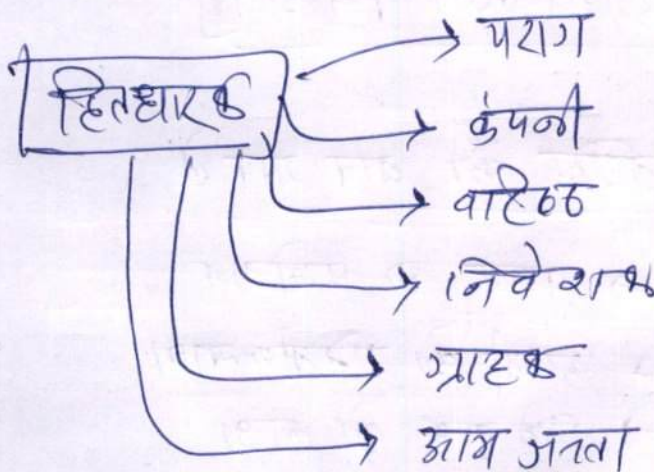 हितधारक
पराग
कंपनी
वरिष्ठ
निवेशक
ग्राहक
आम जनता